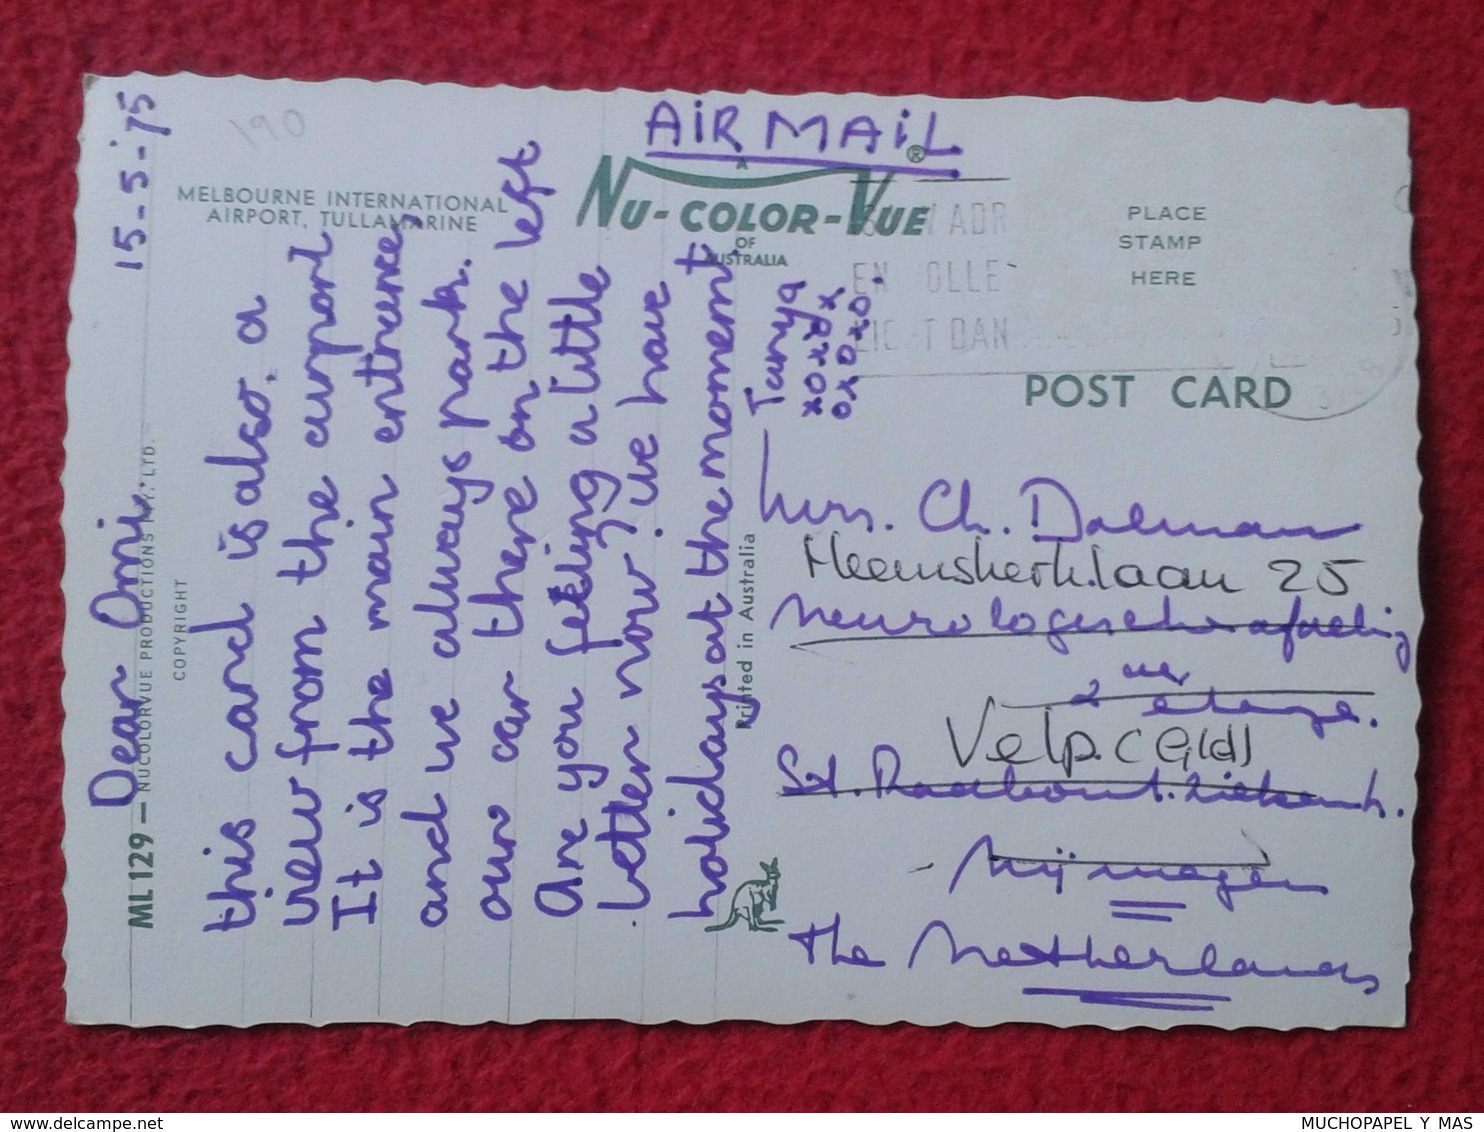 15-5-'75
190
MELBOURNE INTERNATIONAL
AIRPORT, TULLAMARINE
ML 129 — NUCOLORVUE PRODUCTIONS PTY. LTD.
COPYRIGHT
Dear Omi.
this card is also a
view from the airport
It is the main entrance,
and we always park.
our car there on the left
Are you feeling a little
better now? we have
holidays at the moment.
Tanya
xoxox
oxoxo.
AiR MAiL
A
NU-COLOR-VUE®
OF
AUSTRALIA
Printed in Australia
PLACE
STAMP
HERE
ADR
EN OLLE
T DAN
POST CARD
Mrs. Ch. Dolman
Heemskerklaan 25
neurologische afdeling
2 etage.
Velp (Gld)
St. Radboud. ziekenh.
Nijmegen
the Netherlands
MUCHOPAPEL Y MAS